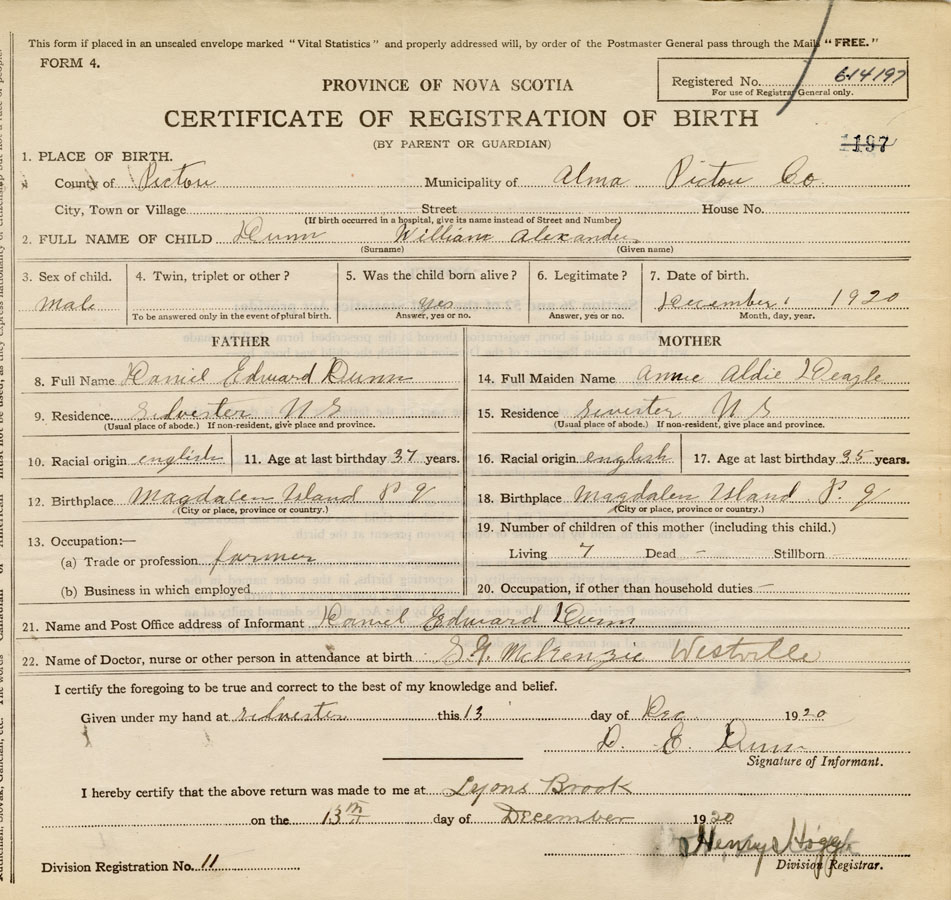 This form if placed in an unsealed envelope marked "Vital Statistics" and properly addressed will, by order of the Postmaster General pass through the Mails "FREE."
FORM 4.
Registered No. 614197
For use of Registrar General only.
PROVINCE OF NOVA SCOTIA
CERTIFICATE OF REGISTRATION OF BIRTH
(BY PARENT OR GUARDIAN)
1197
1. PLACE OF BIRTH.
County of Pictou Municipality of Alma Pictou Co.
City, Town or Village Street House No.
(If birth occurred in a hospital, give its name instead of Street and Number)
2. FULL NAME OF CHILD Dunn William Alexander
(Surname) (Given name)
3. Sex of child. 4. Twin, triplet or other? 5. Was the child born alive? 6. Legitimate? 7. Date of birth.
male yes December 1 1920
To be answered only in the event of plural birth. Answer, yes or no. Answer, yes or no. Month, day, year.
FATHER MOTHER
8. Full Name Daniel Edward Dunn 14. Full Maiden Name Annie Aldie
9. Residence Sylvester N S 15. Residence N S
(Usual place of abode.) If non-resident, give place and province. (Usual place of abode.) If non-resident, give place and province.
10. Racial origin english 11. Age at last birthday 37 years. 16. Racial origin english 17. Age at last birthday 35 years.
12. Birthplace Magdalen Island P Q 18. Birthplace Magdalen Island P Q
(City or place, province or country.) (City or place, province or country.)
13. Occupation:— 19. Number of children of this mother (including this child.)
(a) Trade or profession farmer Living 7 Dead – Stillborn
(b) Business in which employed 20. Occupation, if other than household duties –
21. Name and Post Office address of Informant Daniel Edward Dunn
22. Name of Doctor, nurse or other person in attendance at birth McKenzie Westville
I certify the foregoing to be true and correct to the best of my knowledge and belief.
Given under my hand at this 13 day of Dec 1920
D. E. Dunn
Signature of Informant.
I hereby certify that the above return was made to me at Lyons Brook
on the 13th day of December 1920
Henry Hogg
Division Registrar.
Division Registration No. 11